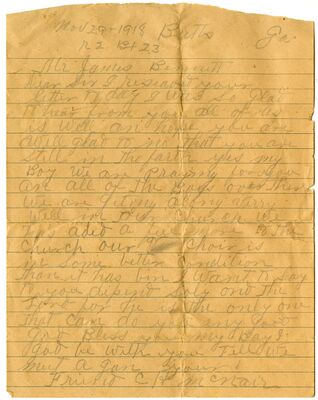 Nov 29-1918 Butts Ga.
R2 Bx 23
Mr James Bennett
Dear Sir I receaved your
letter to day I was so glad
to hear from you all of us
is well an hope you are
still glad to no that you are
still in the faith yes my
Boy we are Praying for you
an all of the Boys over there
we are geting along varry
well in our church we
has aded a few more to the
church our choir is
in some better condition
than it has bin I want to say
to you depend only on the
Lord for he is the only one
that can do you any good
God Bless you my Boy
God be with you till we
meet a gan your
Friend C R McNair